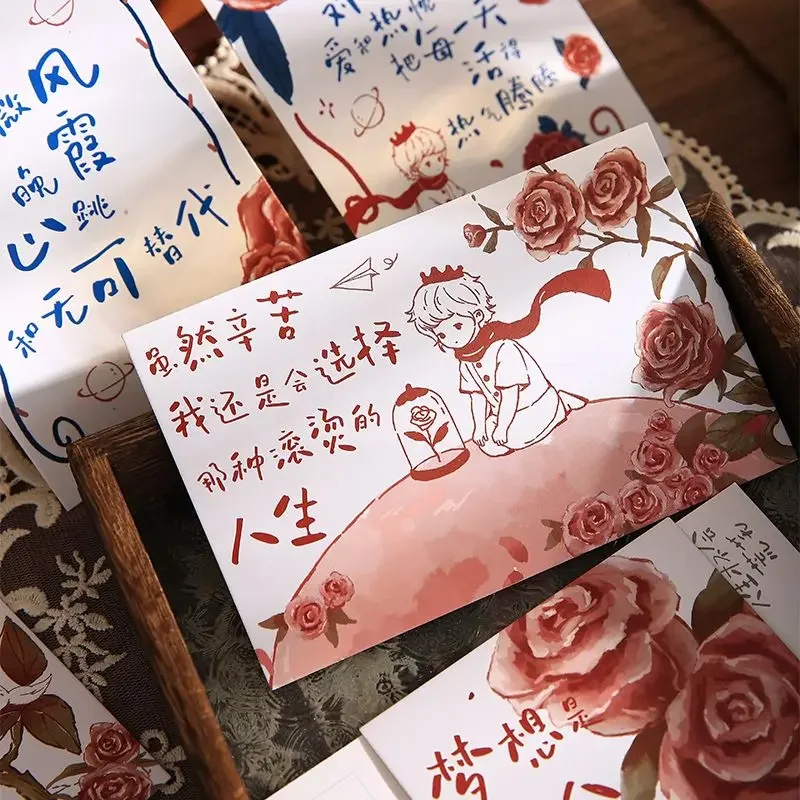 微风
晚霞
心跳
和无可替代
对
爱和热忱
把每一天
活得
热气腾腾
虽然辛苦
我还是会选择
那种滚烫的
人生
梦想是